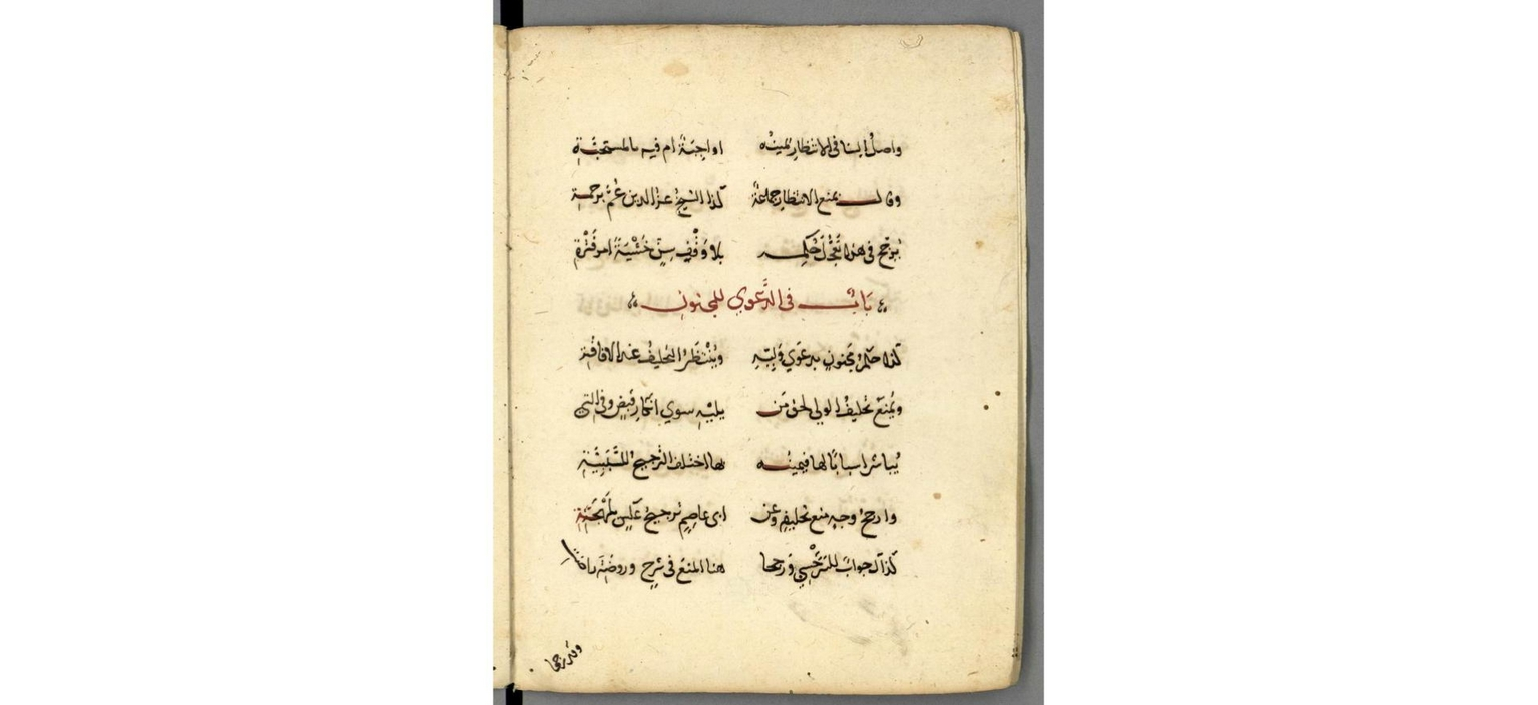 واصل ابننا في الانتظار يمينه اواجبة ام فيه بالمستحبة
وقال بمنع الانتظار جماعة كذا الشيخ عز الدين عم برحمة
يرجح في هذا تعجل حكمه بلا وقف سن خشية امر فترة
باب في الدعوي للمجنون
كذا حكم مجنون بدعوي وليه وينتظر التحليف عند الافاقة
ويمنع تحليف الولي لحق من يليه سوي انكار قبض وفي التي
يباشر اسبابا لها فيمينه بها اختلف الترجيح
وارجح وجه منع تحليفه وعن ابي عاصم ترجيح
كذاك جواب للسرخسي ورجحا هنا المنع في شرح وروضة
وقد رجحا